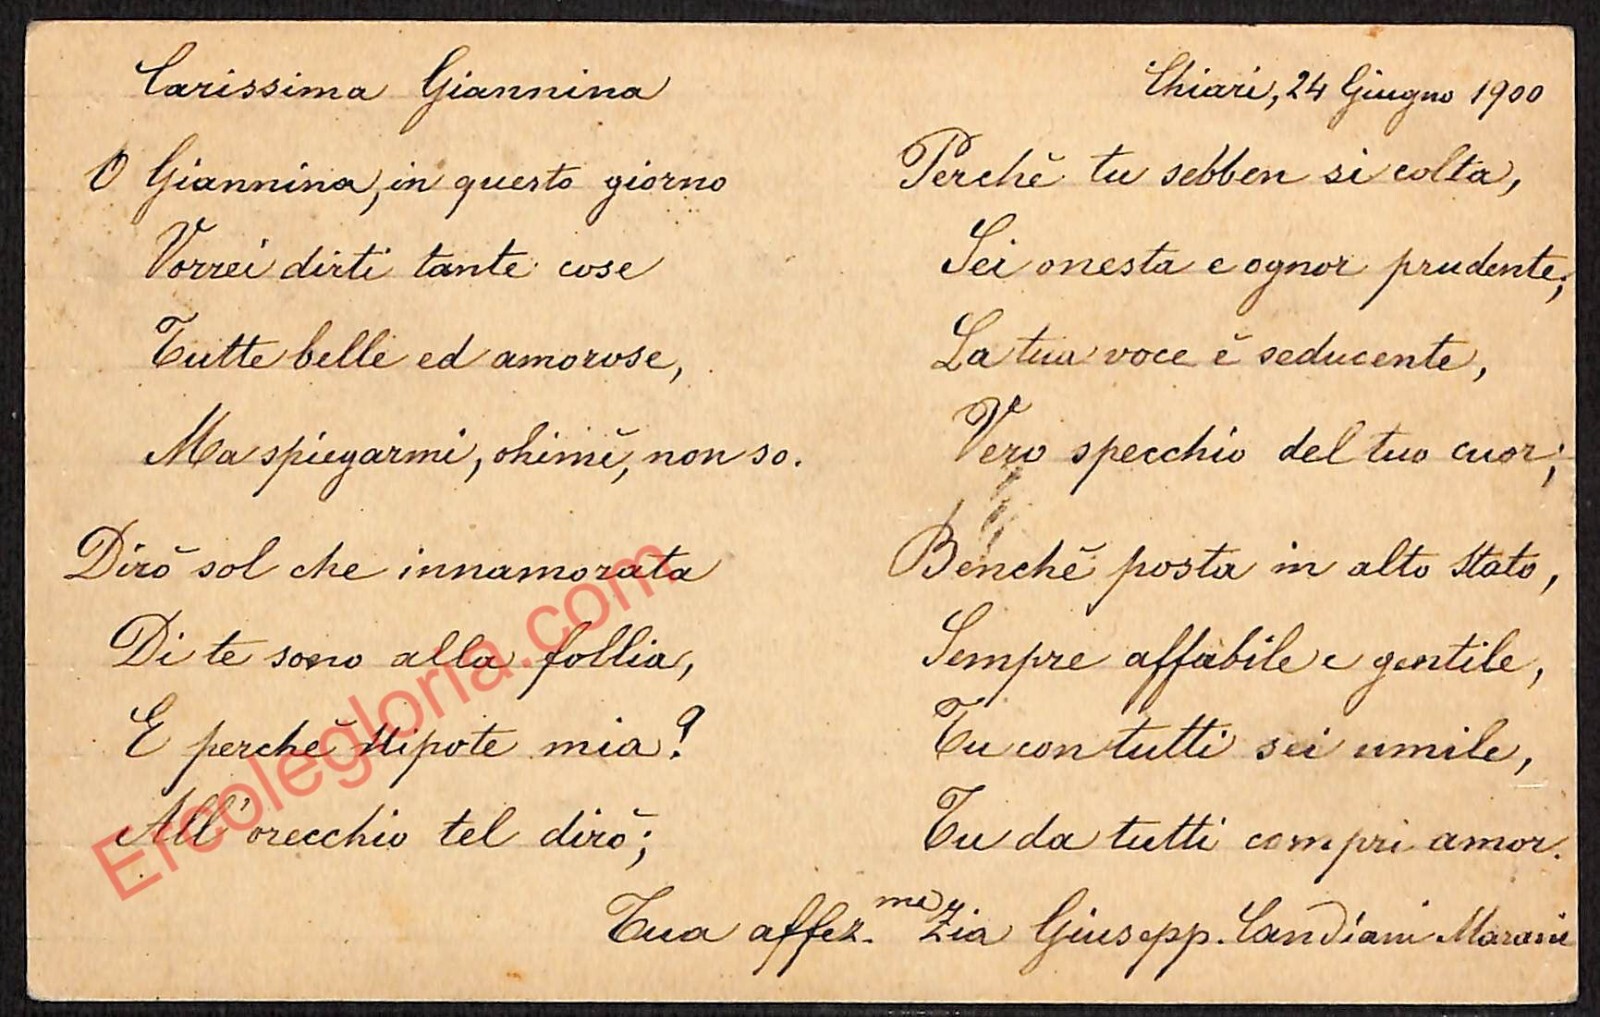 Carissima Giannina
Chiari, 24 Giugno 1900
O Giannina, in questo giorno
Vorrei dirti tante cose
Tutte belle ed amorose,
Ma spiegarmi, ohimè, non so.
Dirò sol che innamorata
Di te sono alla follia,
E perchè Nipote mia?
All'orecchio tel dirò;
Perchè tu sebben si colta,
Sei onesta e ognor prudente;
La tua voce è seducente,
Vero specchio del tuo cuor;
Benchè posta in alto stato,
Sempre affabile e gentile,
Tu con tutti sei umile,
Tu da tutti compri amor.
Tua affez.ma Zia Giusepp. Candiani
Ercolegloria.com